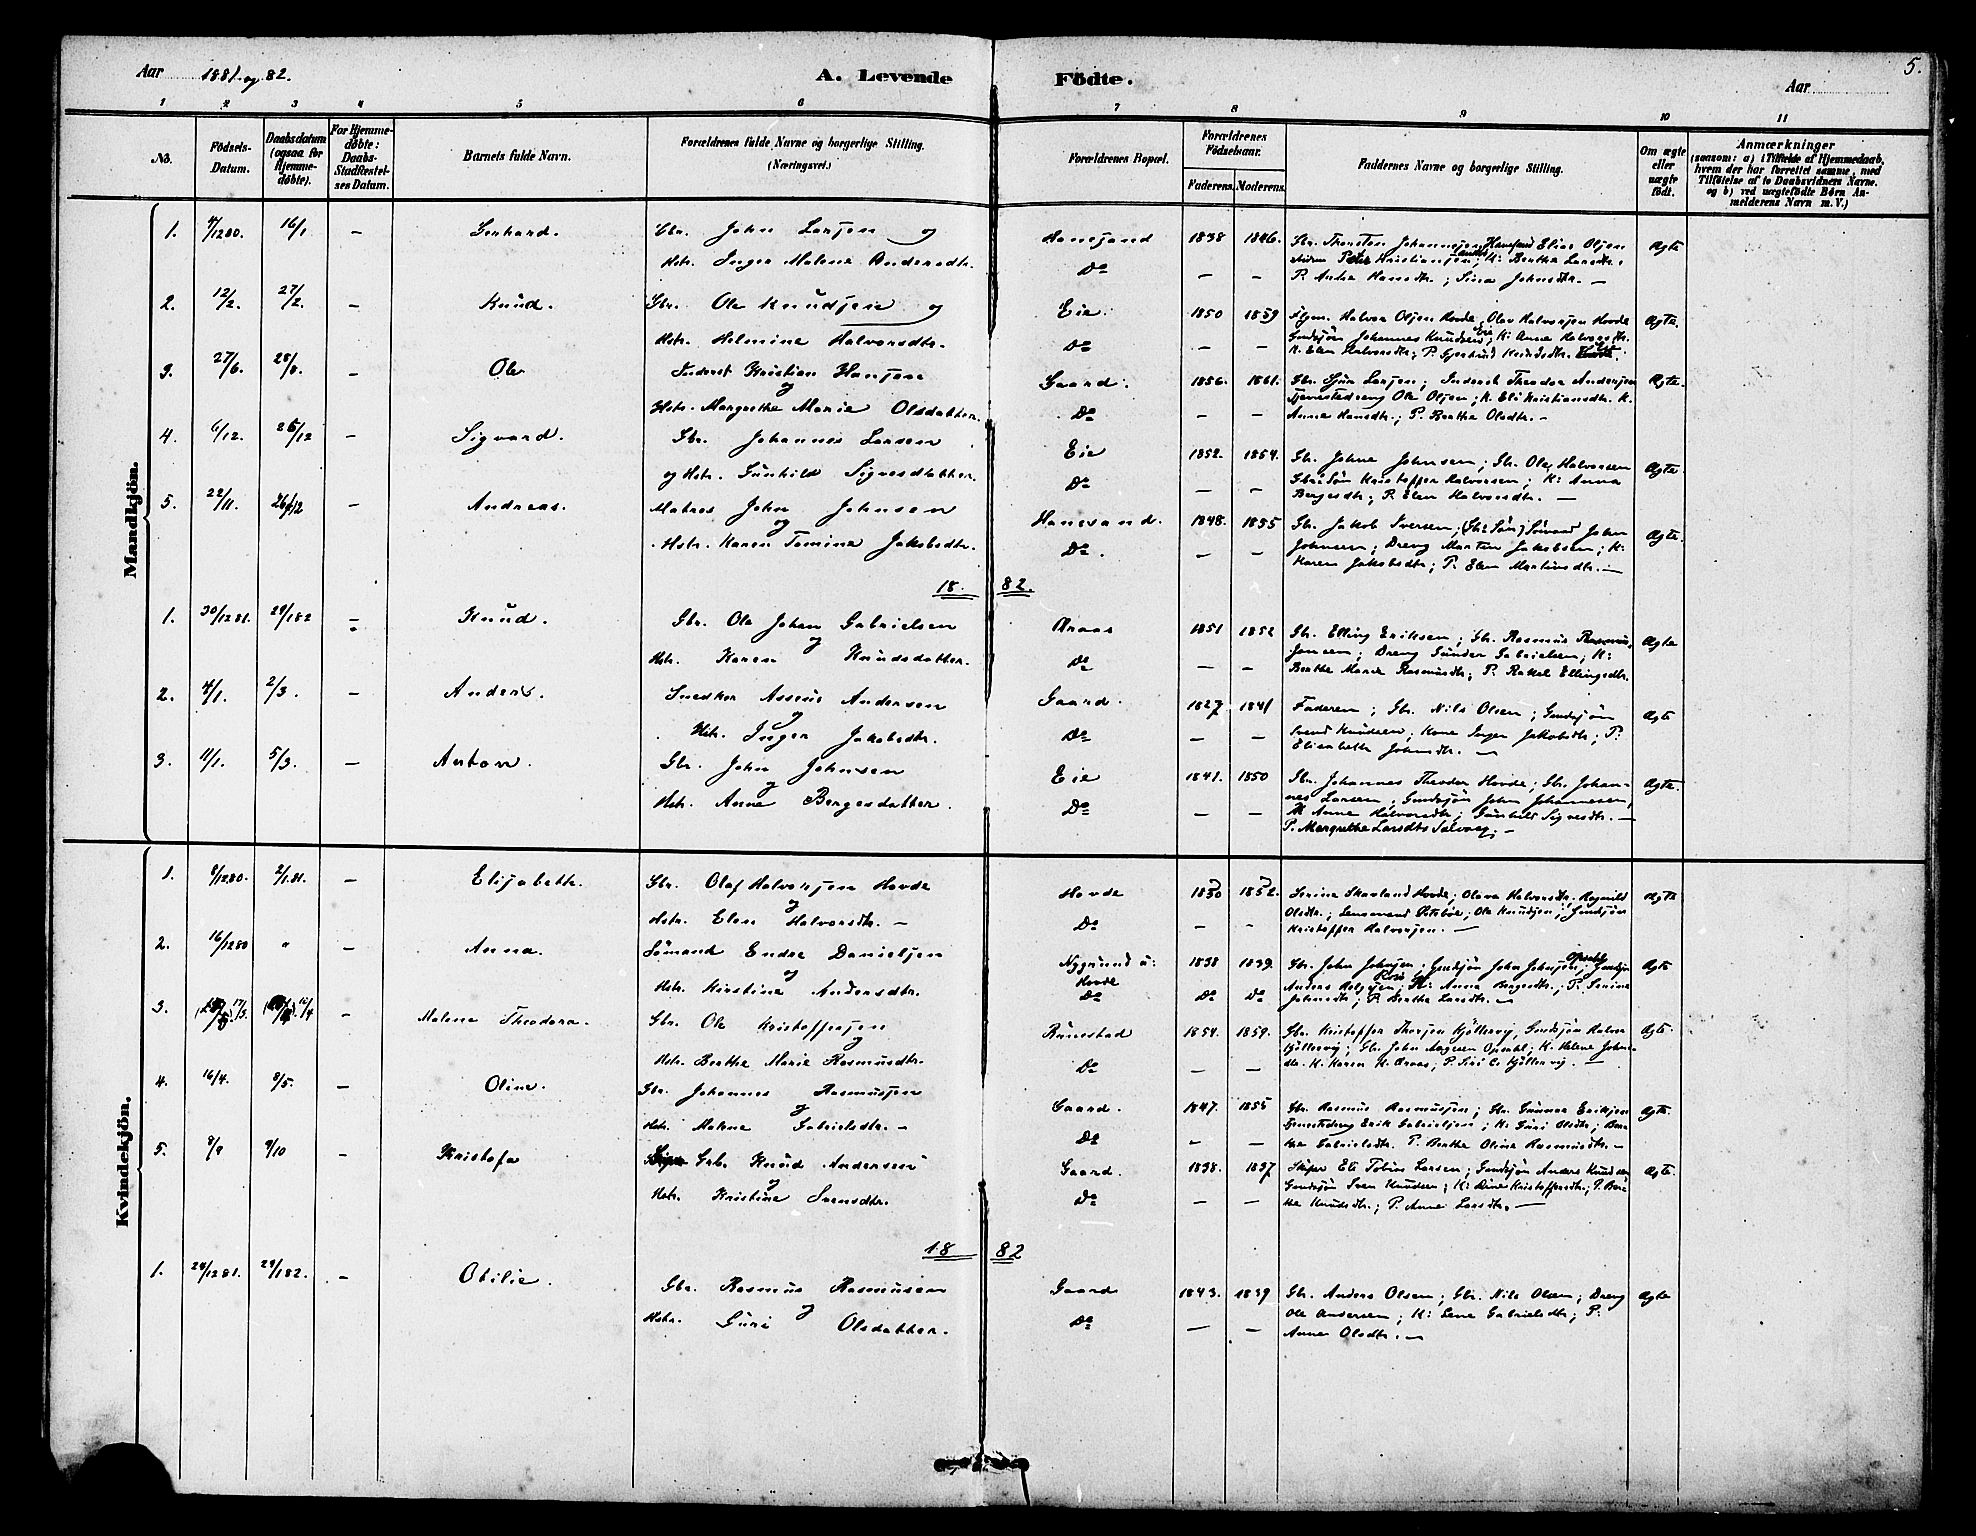 Aar 1881 og 82. A. Levende Födte. Aar 5.
1 2 3 4 5 6 7 8 9 10 11
No. Födsels-Datum. Daabsdatum (ogsaa for Hjemmedøbte). For Hjemmedøbte: Daabs-Stadfæstelses Datum. Barnets fulde Navn. Forældrenes fulde Navne og borgerlige Stilling. (Næringsvei.) Forældrenes Bopæl. Forældrenes Födselsaar. Faderens. Moderens. Faddernes Navne og borgerlige Stilling. Om ægte eller uægte født. Anmærkninger (saasom: a) i Tilfælde af Hjemmedaab, hvem der har forrettet samme, med Tilføielse af to Daabsvidners Navne, og b) ved uægtefødte Børn Anmelderens Navn m. V.)
Mandkjön.
1. 4/12 80. 16/1 – Gerhard. Gbr. John Larsen og Hanesand 1838 1846. Gbr. Thorsten Johannesen Hanesand Elias Olsen Ægte
Hstr. Inger Malene Andersdtr. Do – – Peder Kristiansen; K: Berthe Larsdtr.
P. Andrea Hansdtr; Sina Johnsdtr. –
2. 12/2. 27/2. – Knud. Gbr. Ole Knudsen og Eie. 1850 1859 Halvor Olsen Hovde, Olav Halvorsen Hovde Ægte.
Hstr. Helmine Halvorsdtr. Do – – Gaardsjön Johannes Knudsen Eie; K: Anne Halvorsdtr.
K. Elen Halvorsdtr; P. Gjertrud Knudsdtr. Eie.
3. 27/6. 28/8. – Ole Inderst Kristian Hansen og Gaard. 1856. 1861. Gbr. Sjur Larsen; Inderst Theodor Andersen Ægte.
Hstr. Margrethe Marie Olsdatter. Do – – Tjenestedreng Ole Olsen; K. Eli Kristiansdtr. K.
Anne Hansdtr; P. Berthe Olsdtr. –
4. 6/12. 26/12 – Sigvard. Gbr. Johannes Larsen Eie 1852. 1854. Gbr. Johne Johnsen; Gbr. Ole Halvorsen Ægte.
og Hstr. Gunhild Sigvesdatter. Do – – Gbr: Søn Kristoffer Halvorsen; K: Anna
Bergesdtr; P. Elen Halvorsdtr. –
5. 22/11. 26/12 – Andreas. Matros John Johnsen og Hanesand. 1848. 1855 Gbr. Jakob Iversen; (Gbr: Søn) Sömand John Ægte.
Hstr. Karen Tomine Jakobsdtr. Do. – – Johnsen; Dreng Martin Jakobsen; K:
Karen Jakobsdtr; P. Elen Martinsdtr. –
18 82.
1. 30/12 81. 29/1 82 – Knud. Gbr. Ole Johan Gabrielsen og Araas 1851 1852 Gbr. Elling Eriksen; Gbr. Rasmus Rasmus, Ægte
Hstr. Karen Knudsdatter. Do – – Jensen; Dreng Gunder Gabrielsen; K:
Berthe Marie Rasmusdtr; P. Rakel Ellingsdtr.
2. 4/1. 2/3. – Anders. Snedker Asseus Andersen og Gaard. 1827. 1841 Faderen; Gbr. Nils Olsen; Gaardsjön Ægte
Hstr. Inger Jakobsdtr. Do – – Svend Knudsen; Kone Inger Jakobsdtr; P:
Elisabeth Johnsdtr. –
3. 11/1. 5/3. – Anton. Gbr. John Johnsen og Eie 1841. 1850 Gbr. Johannes Theodor Hovde; Gbr. Johan- Ægte.
Hstr. Anne Bergesdatter. Do – – nes Larsen; Gaardsjön John Johannesen,
K Anne Halvorsdtr; Gunhild Sigvesdtr. –
P. Margrethe Larsdtr –
Kvindekjön.
1. 6/12 80. 2/1. 81. – Elisabeth. Gbr. Olaf Halvorsen Hovde og Hovde 1850 1852. Serine Skaaland Hovde; Olava Halvorsdtr. Ragnild Ægte
Hstr. Elen Halvorsdtr. – Do – – Olsdtr.; Ole Knudsen; Gaardsjön
Kristoffer Halvorsen. –
2. 16/12 80 " – Anna. Sömand Endre Danielsen og Nygrund u: Hovde 1838 1839. Gbr. John Johnsen; Gaardsjön John Johnsen; Opsahl Ægte
Hstr. Kirstine Andersdtr. Do Do Do Anders; K: Anna Bergesdtr; P. Serine
Johnsdtr; P. Berthe Larsdtr. –
3. 17/3. 16/4 – Malene Theodora. Gbr. Ole Kristoffersen og Runestad 1854. 1859. Gbr. Kristoffer Thorsen Kjöllevig, Gaardsjön Halvor Ægte.
Hstr. Berthe Marie Rasmusdtr. Do – – Kjöllevig; Gbr. John Aagesen Opsahl; K. Helene Johns-
dtr. K. Karen K. Araas; P. Siri C. Kjöllevig. –
4. 16/4. 8/5. – Oline. Gbr. Johannes Rasmussen og Gaard. 1847. 1855 Gbr. Rasmus Rasmussen; Gbr. Gunnar Eriksen Ægte.
Hstr. Malene Gabrielsdtr. – Do – – Erik Gabrielsen; K: Guri Olsdtr; Ber-
the Gabrielsdtr. P. Berthe Oline Rasmusdtr. –
5. 8/9 9/10 – Kristofa Gbr. Knud Andersen og Gaard. 1838. 1837 Skiper Eli Tobias Larsen; Gaardsjön Anders Knudsen Ægte.
Hstr. Kristine Svensdtr. Do – – Gaardsjön Sven Knudsen; K: Dine Kristoffersdtr; P. Ber-
the Knudsdtr.; P. Anne Larsdtr. –
18 82
1. 24/12 81. 29/1 82. – Otilie. Gbr. Rasmus Rasmusen og Gaard 1843. 1839 Gbr. Anders Olsen; Gbr. Nils Olsen; Dreng Ægte
Hstr. Guri Olsdatter. Do – – Ole Andersen; K: Lene Gabrielsdtr; P.
Anne Olsdtr. –